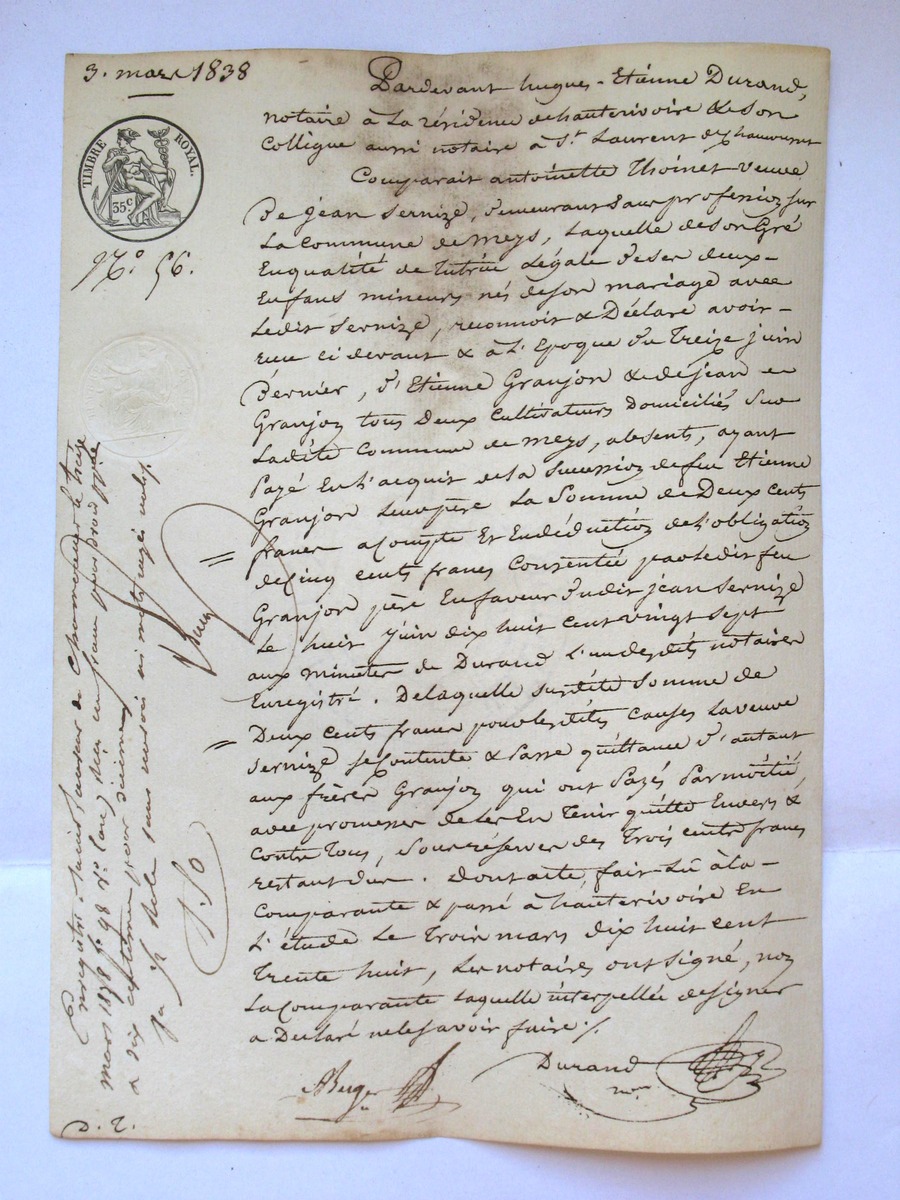 3. mars 1838
TIMBRE ROYAL.
35c
N.° 56.
Pardevant hugues-Etienne Durand,
notaire à la résidence de hauterivoire & son
Collègue aussi notaire à St Laurent de chamousset
Comparait antoinette Thoinet veuve
De jean Sernize, demeurant sans profession sur
la commune de meys, laquelle de son Gré
En qualité de tutrice Légale de ses deux-
Enfans mineurs nés de son mariage avec
ledit Sernize, reconnoit & Déclare avoir-
reçu ci devant & à l'Epoque du Treize juin
Dernier, d'Etienne Granjon & de jean
Granjon tous Deux Cultivateurs Domiciliés sur
ladite Commune de meys, absents, ayant
Payé En l'acquit de la succession de feu Etienne
Granjon leur père la Somme de Deux cents
francs acompte Et En déduction de l'obligation
de cinq cents francs Consentie par ledit feu
Granjon père En faveur dudit jean Sernize
Le huit juin dix huit cent vingt sept
aux minutes de Durand l'un desdits notaires
Enregistré. De laquelle susdite Somme de
Deux cents francs pour lesdites causes la veuve
Sernize se Contente & Passe quittance d'autant
aux frères Granjon qui ont Payés Par moitié,
avec promesse de les En Tenir quitte Envers &
Contre Tous, sous réserve des Trois cents francs
restant dus. Dont acte, fait Lû à la-
Comparante & passé à hauterivoire En
L'étude Le Trois mars dix huit cent
Trente huit, Les notaires ont signé, non
La Comparante laquelle interpellée de signer
a Déclaré ne le savoir faire ./.
Durand
nre
Berger
Enregistré à Saint Laurent de Chamousset le treize
mars 1838 f° 98 r°
D. 2.